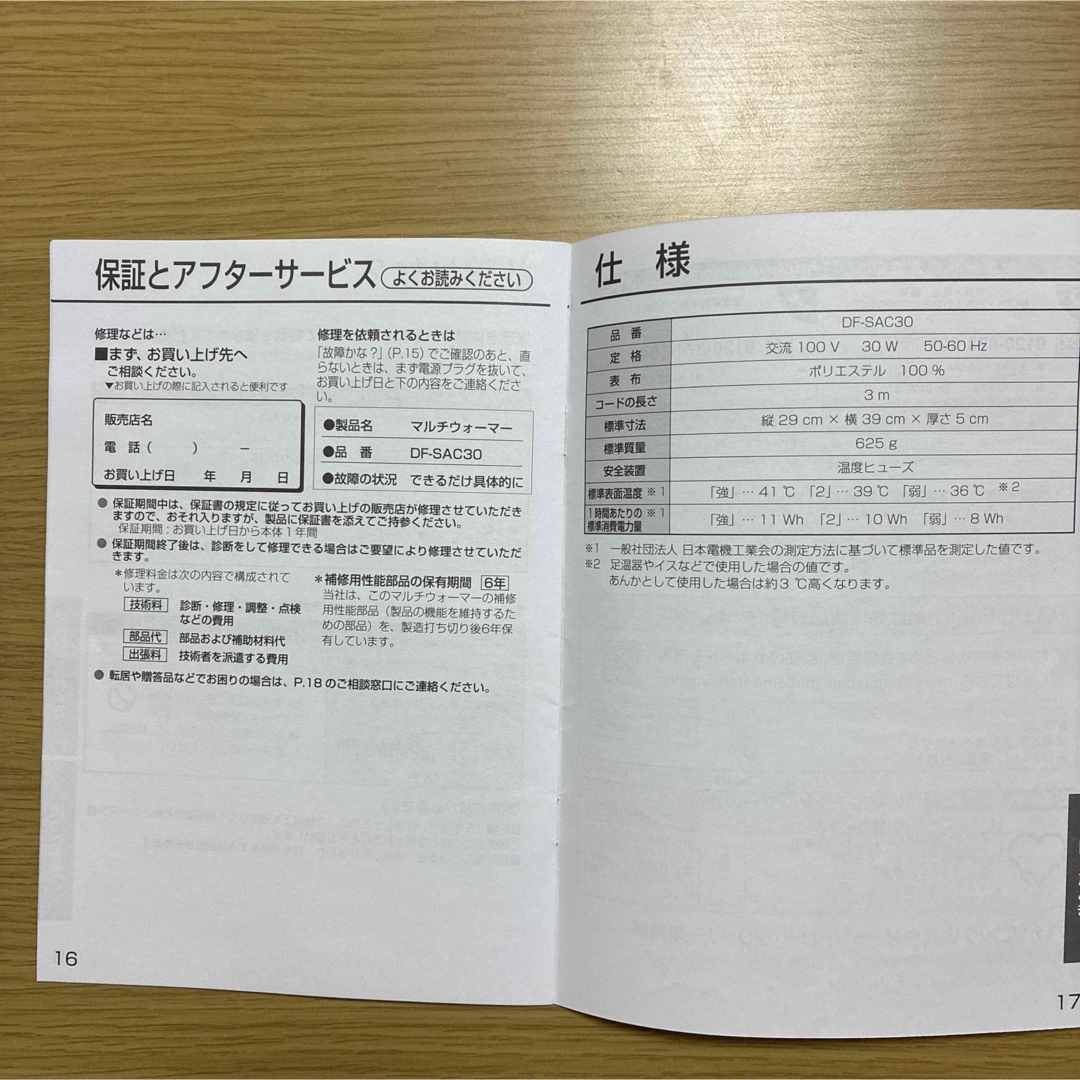 保証とアフターサービス よくお読みください
修理などは…
■まず、お買い上げ先へ
ご相談ください。
▼お買い上げの際に記入されると便利です
販売店名
電 話（ ） －
お買い上げ日 年 月 日
修理を依頼されるときは
「故障かな？」（P.15）でご確認のあと、直
らないときは、まず電源プラグを抜いて、
お買い上げ日と下の内容をご連絡くださ
い。
●製品名 マルチウォーマー
●品 番 DF-SAC30
●故障の状況 できるだけ具体的に
● 保証期間中は、保証書の規定に従ってお買い上げの販売店が修理させていただき
ますので、おそれ入りますが、製品に保証書を添えてご持参ください。
保証期間：お買い上げ日から本体1年間
● 保証期間終了後は、診断をして修理できる場合はご要望により修理させていただ
きます。
＊修理料金は次の内容で構成されて
います。
技術料 診断・修理・調整・点検
などの費用
部品代 部品および補助材料代
出張料 技術者を派遣する費用
＊補修用性能部品の保有期間 6年
当社は、このマルチウォーマーの補修
用性能部品（製品の機能を維持するた
めの部品）を、製造打ち切り後6年保
有しています。
● 転居や贈答品などでお困りの場合は、P.18 のご相談窓口にご連絡ください。
16
仕 様
品 番 DF-SAC30
定 格 交流 100 V 30 W 50-60 Hz
表 布 ポリエステル 100 %
コードの長さ 3 m
標準寸法 縦 29 cm × 横 39 cm × 厚さ 5 cm
標準質量 625 g
安全装置 温度ヒューズ
標準表面温度 ※1 「強」… 41 ℃ 「2」… 39 ℃ 「弱」… 36 ℃ ※2
1時間あたりの ※1
標準消費電力量 「強」… 11 Wh 「2」… 10 Wh 「弱」… 8 Wh
※1 一般社団法人 日本電機工業会の測定方法に基づいて標準品を測定した値です。
※2 足温器やイスなどで使用した場合の値です。
あんかとして使用した場合は約3 ℃高くなります。
17